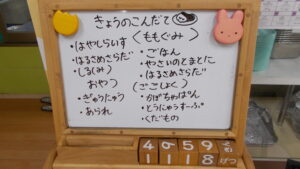 きょうのこんだて
・はやしらいす
・はるさめさらだ
・しる(み)
おやつ
・ぎゅうにゅう
・あられ
(ももぐみ)
・ごはん
・やさいのとまとに
・はるさめさらだ
(ごごしょく)
・かぼちゃぱん
・とうにゅうすーぷ
・くだもの
4 59
1118 げつ